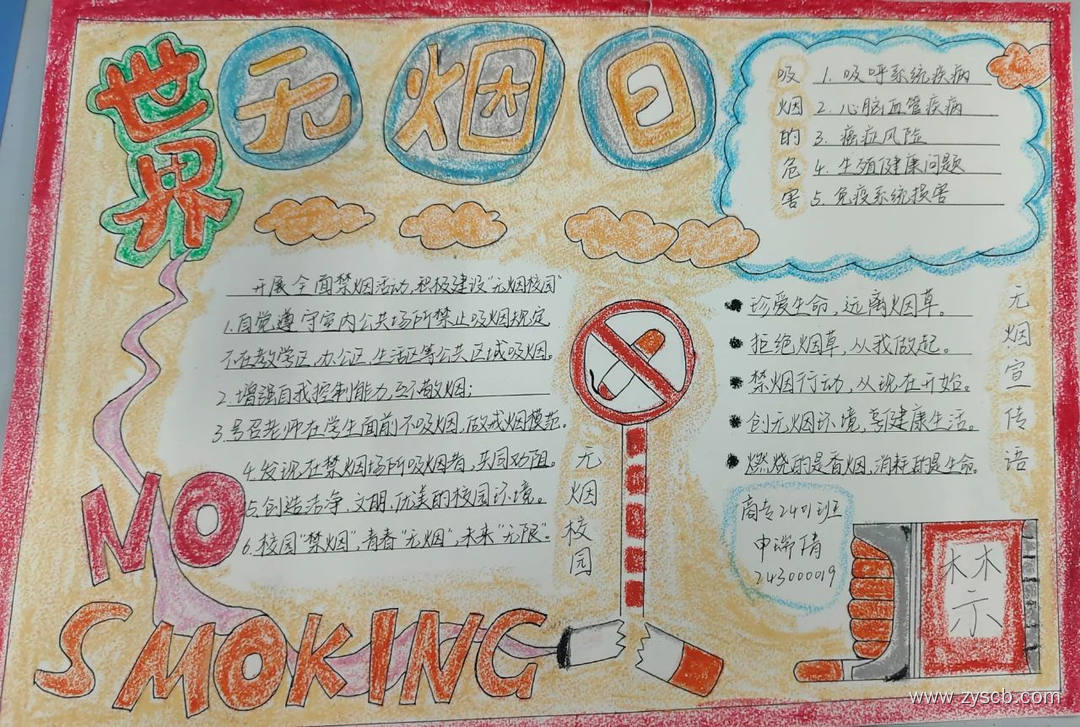 世界
无烟日
吸烟的危害
1. 吸呼系统疾病
2. 心脑血管疾病
3. 癌症风险
4. 生殖健康问题
5. 免疫系统损害
开展全面禁烟活动,积极建设“无烟校园”
1.自觉遵守室内公共场所禁止吸烟规定,
不在教学区,办公区,生活区等公共区域吸烟。
2.增强自我控制能力,不敬烟;
3.号召老师在学生面前不吸烟,做戒烟模范。
4.发现在禁烟场所吸烟者,共同劝阻。
5.创造洁净,文明,优美的校园环境。
6.校园“禁烟”,青春“无烟”,未来“无限”。
无烟校园
珍爱生命,远离烟草。
拒绝烟草,从我做起。
禁烟行动,从现在开始。
创无烟环境,享健康生活。
燃烧的是香烟,消耗的是生命。
无烟宣传语
商专2401班
申瑞倩
243000019
禁
NO
SMOKING
www.zyscb.com